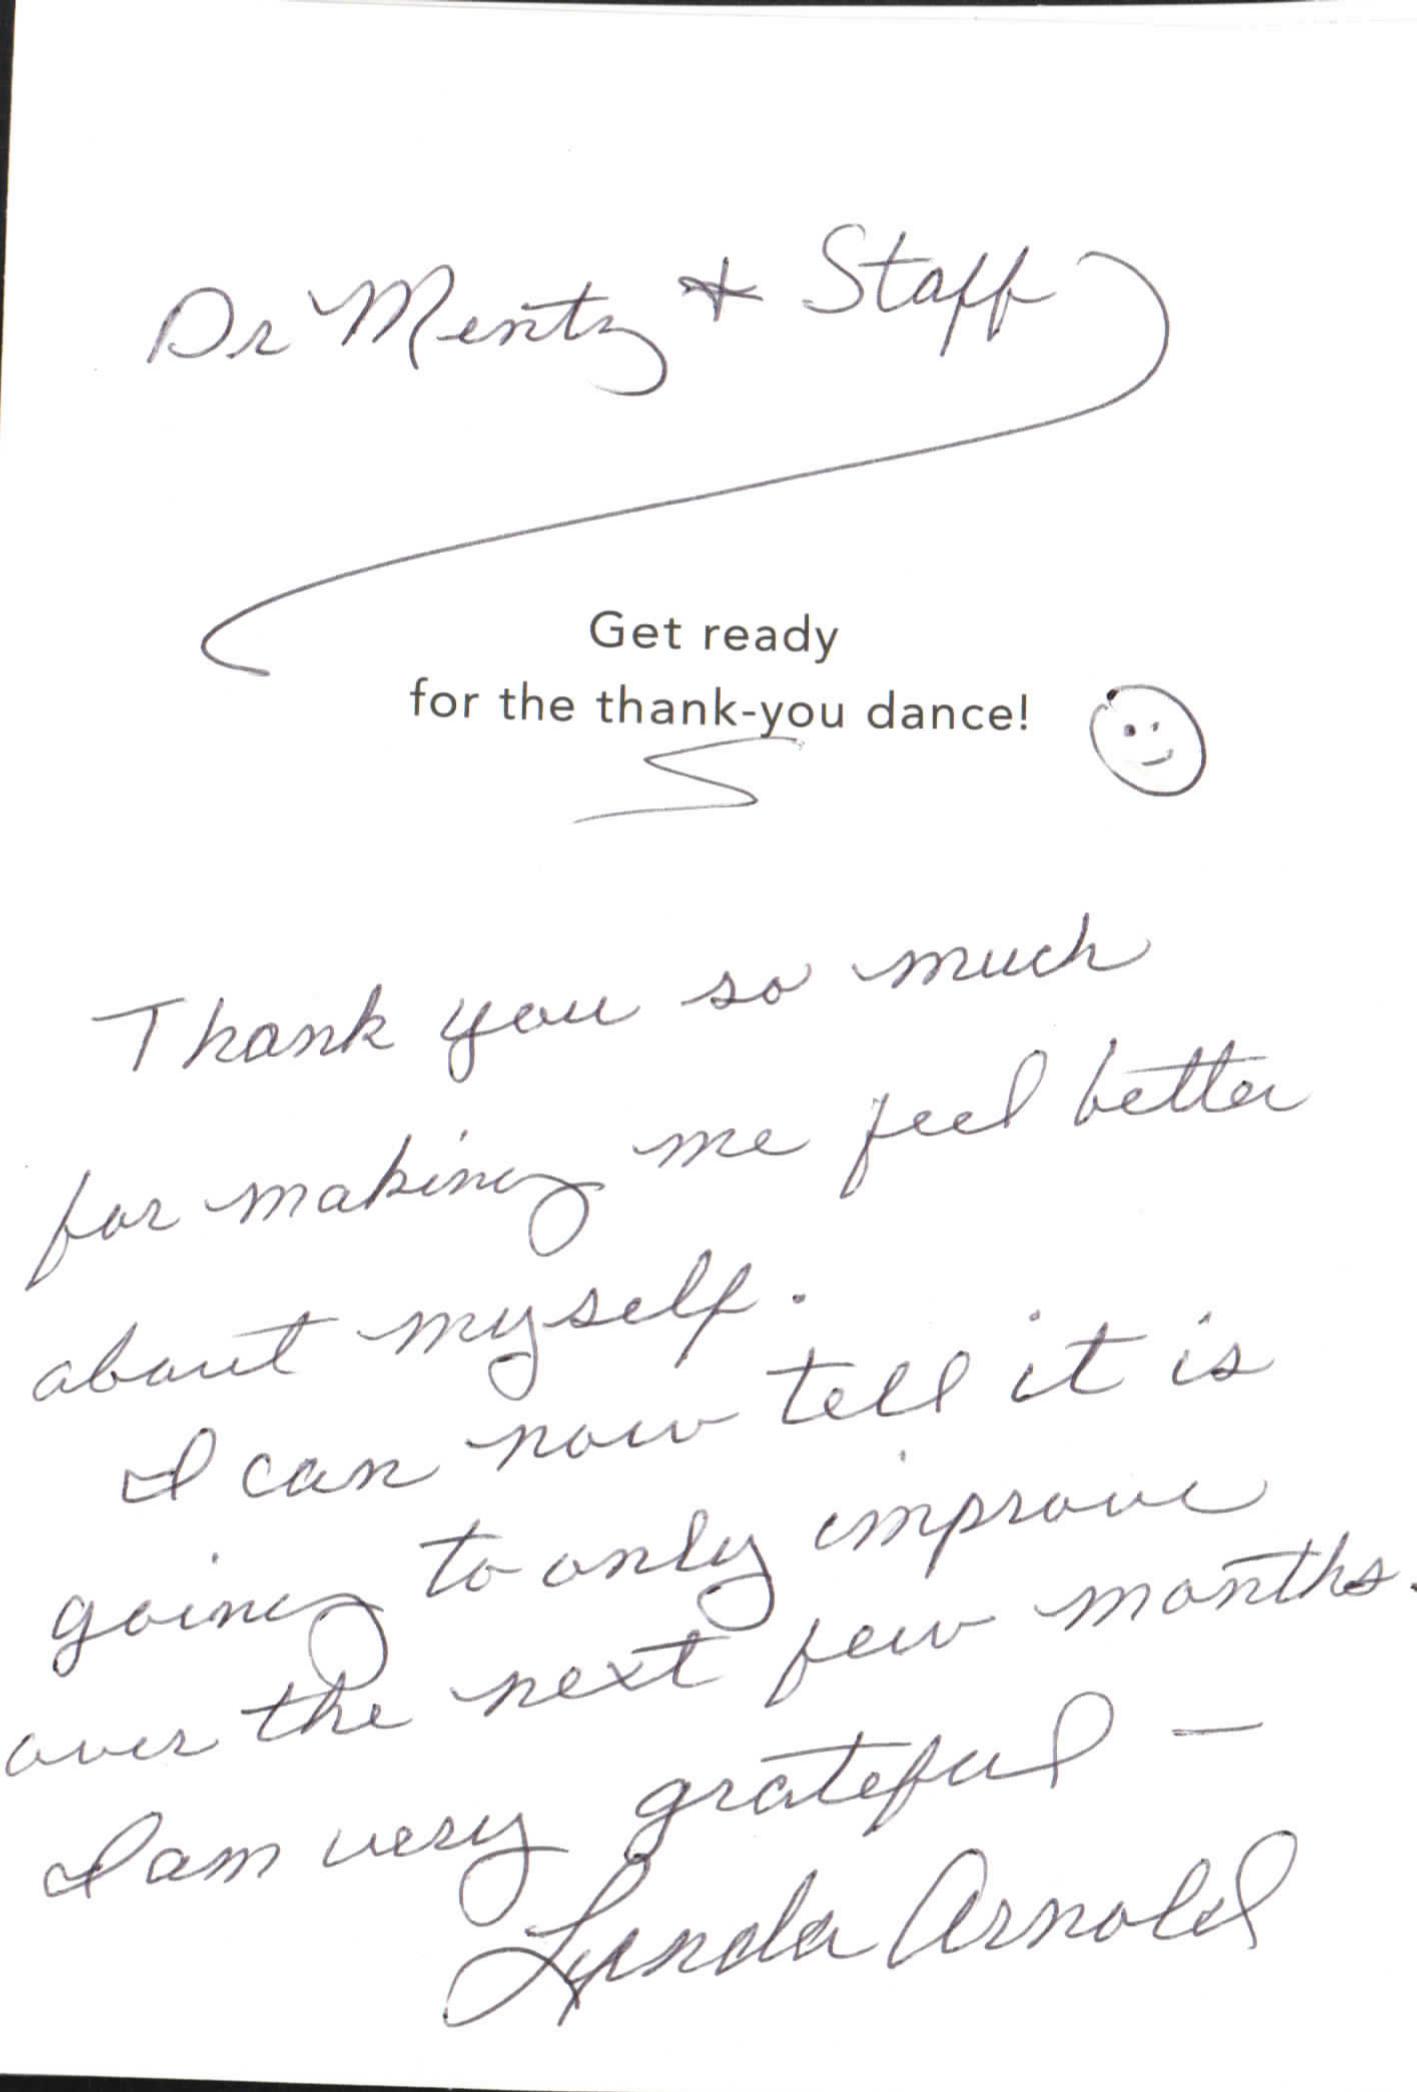 Dr Mentz + Staff
Get ready
for the thank-you dance!
Thank you so much
for making me feel better
about myself.
I can now tell it is
going to only improve
over the next few months.
I am very grateful —
Lynda Arnold